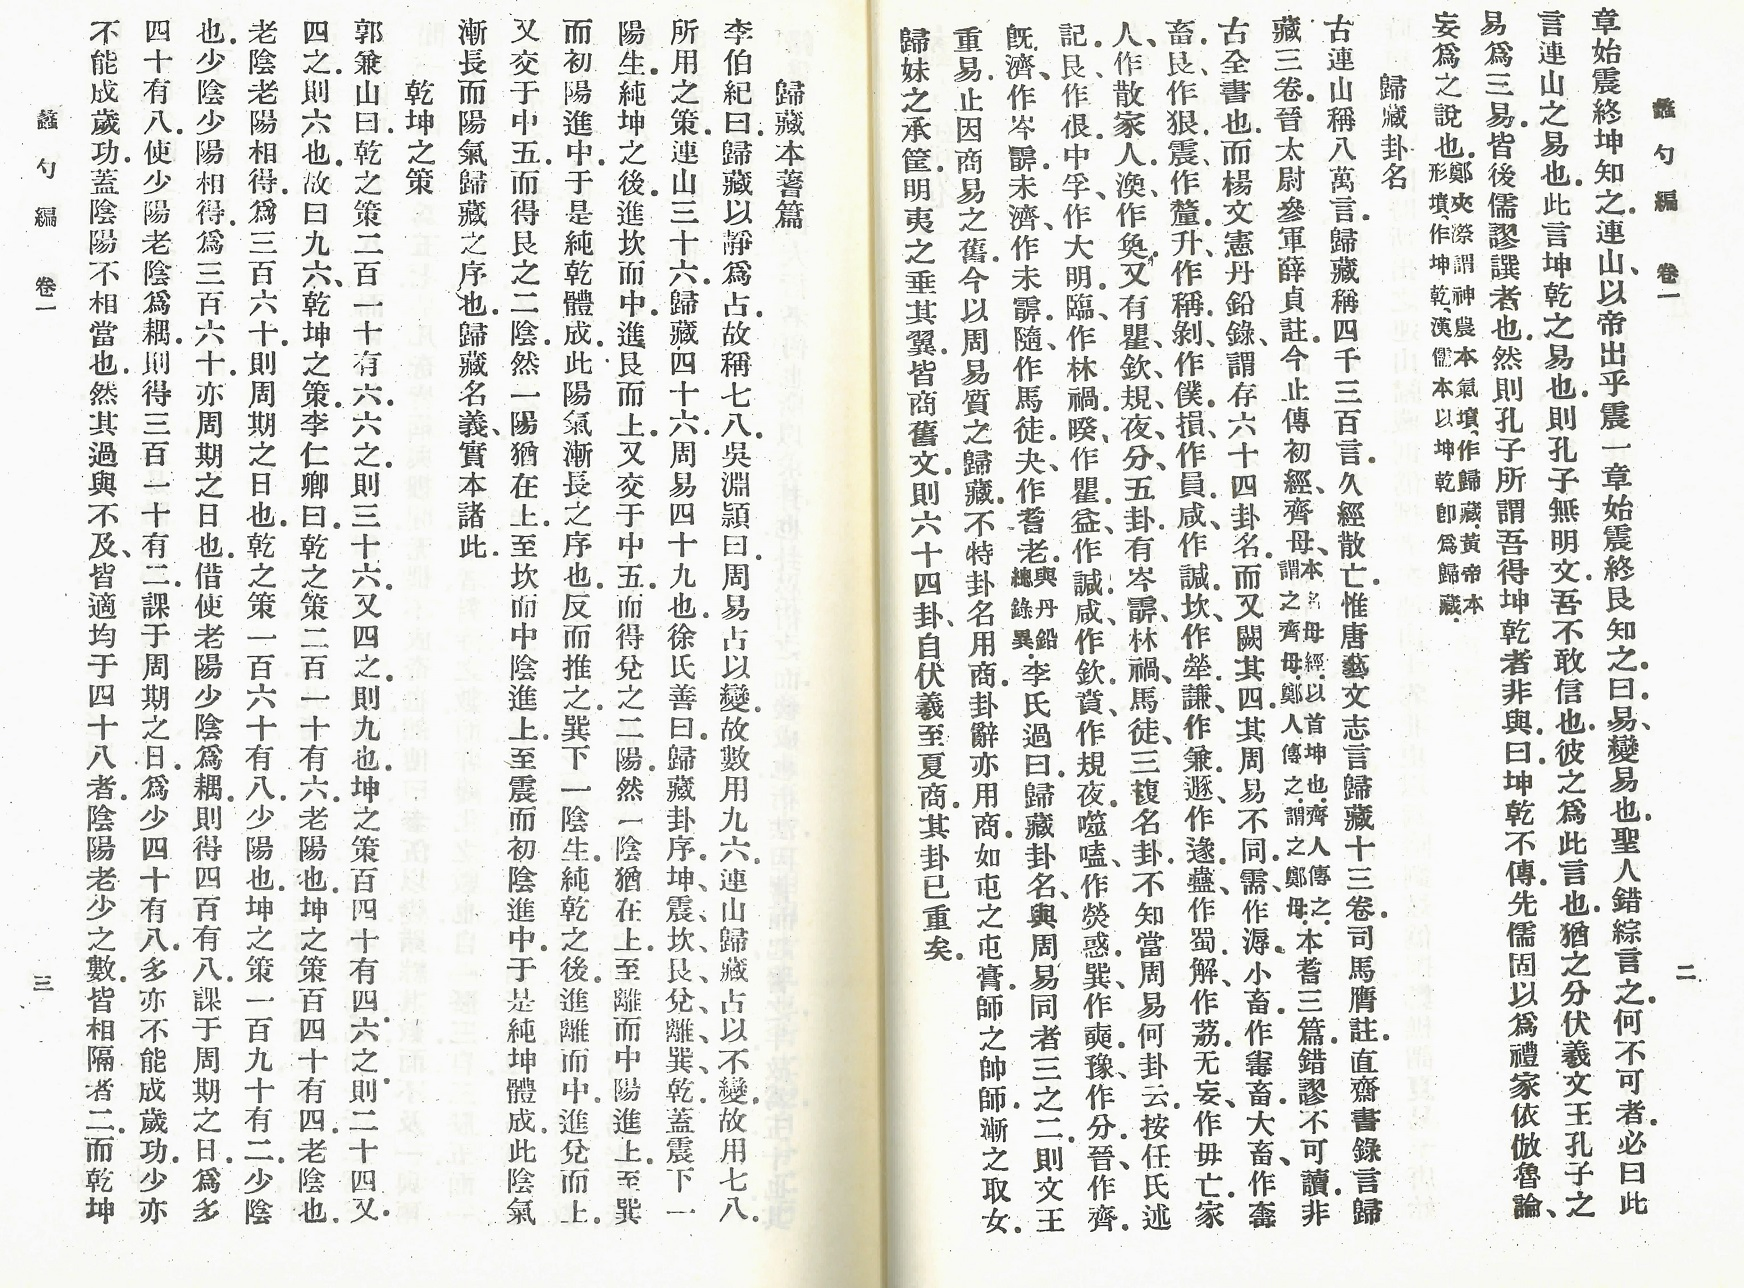 蠡勺編　卷一　二
章始震終坤知之.連山、以帝出乎震一章始震終艮知之.曰.易、變易也.聖人錯綜言之.何不可者.必曰此
言連山之易也.此言坤乾之易也.則孔子無明文.吾不敢信也.彼之爲此言也.猶之分伏羲文王孔子之
易爲三易.皆後儒謬譔者也.然則孔子所謂吾得坤乾者非與.曰.坤乾不傳.先儒固以爲禮家依倣魯論、
妄爲之說也.鄭夾漈謂神農本氣墳、作歸藏.黃帝本形墳、作坤乾.漢儒本以坤乾卽爲歸藏.
歸藏卦名
古連山稱八萬言.歸藏稱四千三百言.久經散亡.惟唐藝文志言歸藏十三卷.司馬膺註.直齋書錄言歸
藏三卷.晉太尉參軍薛貞註.今止傳初經、齊母、本名母經.以首坤也.齊人傳之.謂之齊母.鄭人傳之.謂之鄭母.本蓍三篇.錯謬不可讀.非
古全書也.而楊文憲丹鉛錄、謂存六十四卦名.而又闕其四.其周易不同.需作溽.小畜作𡖉畜.大畜、作𡘽
畜.艮、作狠.震、作釐.升、作稱.剝、作僕.損、作員.咸、作諴.坎、作犖.謙、作兼.遯、作遂.蠱、作蜀.解、作荔.无妄、作毋亡.家
人、作散家人.渙、作奐.又有瞿、欽、規、夜、分、五卦.有岑𩂣、林禍、馬徒、三複名卦.不知當周易何卦云.按任氏述
記.艮、作很.中孚、作大明.臨、作林禍.睽、作瞿.益、作諴.咸、作欽.賁、作規夜.噬嗑、作熒惑.巽、作奭.豫、作分.晉、作齊.
旣濟、作岑𩂣.未濟、作未𩂣.隨、作馬徒.夬、作耆老.與丹鉛總錄異.李氏過曰.歸藏卦名、與周易同者三之二.則文王
重易.止因商易之舊.今以周易質之歸藏.不特卦名用商.卦辭亦用商.如屯之屯膏.師之帥師.漸之取女.
歸妹之承筐.明夷之垂其翼.皆商舊文.則六十四卦、自伏羲至夏商.其卦已重矣.
歸藏本蓍篇
李伯紀曰.歸藏以靜爲占.故稱七八.吳淵穎曰.周易占以變.故數用九六.連山歸藏占以不變.故用七八.
所用之策.連山三十六.歸藏四十六.周易四十九也.徐氏善曰.歸藏卦序.坤、震、坎、艮、兌、離、巽、乾.蓋震下一
陽生.純坤之後.進坎而中.進艮而上.又交于中五.而得兌之二陽.然一陰猶在上.至離而中陽進上.至巽
而初陽進中.于是純乾體成.此陽氣漸長之序也.反而推之.巽下一陰生.純乾之後.進離而中.進兌而上.
又交于中五.而得艮之二陰.然一陽猶在上.至坎而中陰進上.至震而初陰進中.于是純坤體成.此陰氣
漸長而陽氣歸藏之序也.歸藏名義、實本諸此.
乾坤之策
郭兼山曰.乾之策二百一十有六.六之.則三十六.又四之.則九也.坤之策百四十有四.六之.則二十四.又
四之.則六也.故曰九六、乾坤之策.李仁卿曰.乾之策二百一十有六.老陽也.坤之策百四十有四.老陰也.
老陰老陽相得.爲三百六十.則周期之日也.乾之策一百六十有八.少陽也.坤之策一百九十有二.少陰
也.少陰少陽相得.爲三百六十.亦周期之日也.借使老陽少陰爲耦.則得四百有八.課于周期之日.爲多
四十有八.使少陽老陰爲耦.則得三百一十有二.課于周期之日.爲少四十有八.多亦不能成歲功.少亦
不能成歲功.蓋陰陽不相當也.然其過與不及、皆適均于四十八者.陰陽老少之數.皆相隔者二.而乾坤
蠡勺編　卷一　三